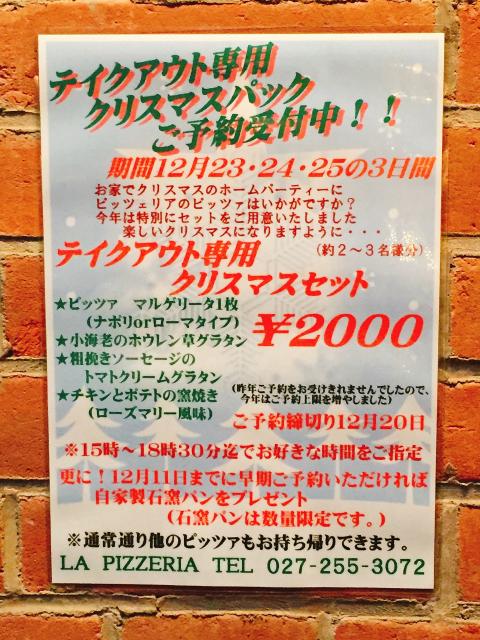 テイクアウト専用
クリスマスパック
ご予約受付中！！
期間12月23・24・25の3日間
お家でクリスマスのホームパーティーに
ピッツェリアのピッツァはいかがですか？
今年は特別にセットをご用意いたしました
楽しいクリスマスになりますように・・・
テイクアウト専用 （約２～３名様分）
クリスマスセット
★ピッツァ マルゲリータ1枚
（ナポリorローマタイプ）
￥2000
★小海老のホウレン草グラタン
★粗挽きソーセージの
トマトクリームグラタン
★チキンとポテトの窯焼き
（ローズマリー風味）
（昨年ご予約をお受けきれませんでしたので、
今年はご予約上限を増やしました）
ご予約締切り12月20日
※15時～18時30分迄でお好きな時間をご指定
更に！12月11日までに早期ご予約いただければ
自家製石窯パンをプレゼント
（石窯パンは数量限定です。）
※通常通り他のピッツァもお持ち帰りできます。
LA PIZZERIA TEL 027-255-3072